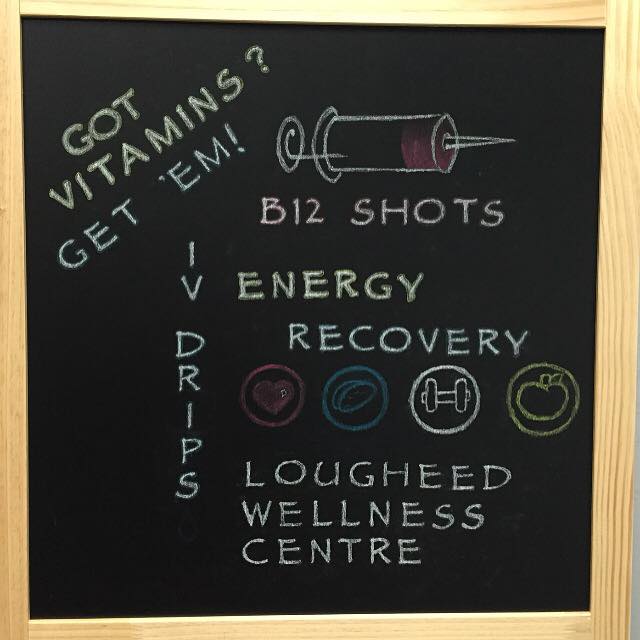 GOT
VITAMINS?
GET 'EM!
B12 SHOTS
IV DRIPS
ENERGY
RECOVERY
LOUGHEED
WELLNESS
CENTRE